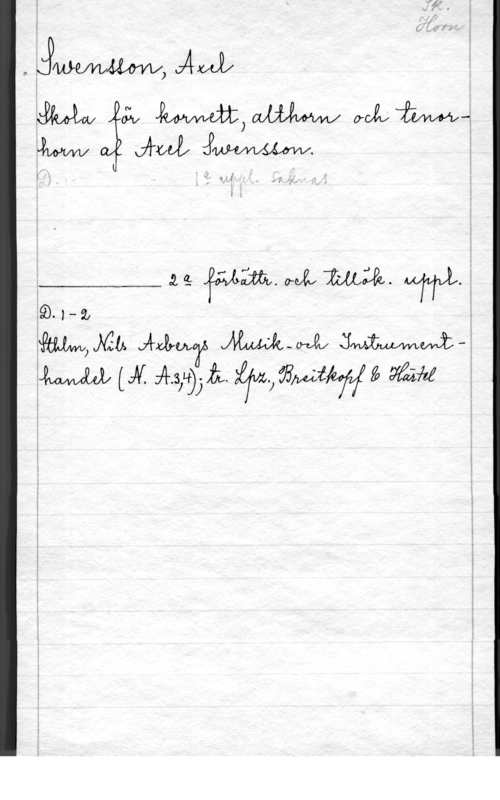 Sk.
Horn
Swensson, Axel
Skola för kornett, althorn och tenor-
horn af Axel Swensson.
D. 1ª uppl. Saknas
2ª förbättr. och tillök. uppl.
D. 1-2
Sthlm, Nils Axbergs Musik- och Instrument-
handel (N. A. 3,4); tr. Lpz., Breitkopf & Härtel